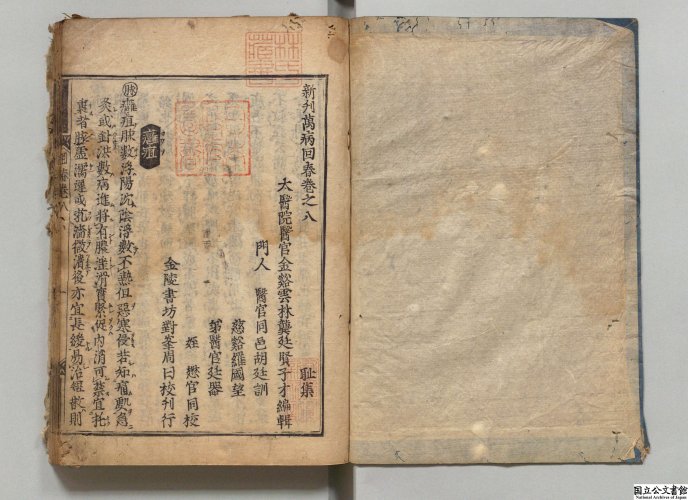 新刊萬病回春卷之八
耻集
太醫院醫官金谿雲林龔廷賢子才編輯
門人 醫官同邑胡廷訓
慈谿羅國望
弟醫官廷器
姪 懋官同校
金陵書坊對峯周曰校刊行
癰疽
脉癰疽脉數浮陽沉陰浮數不熱但惡寒侵若知痛處急
灸或針洪數病進將有膿滛滑實緊促內消可禁宜托
裏者脉虛濡遲或芤濇微潰後亦宜長緩易治短散則
回春卷八
国立公文書館
National Archives of Japan